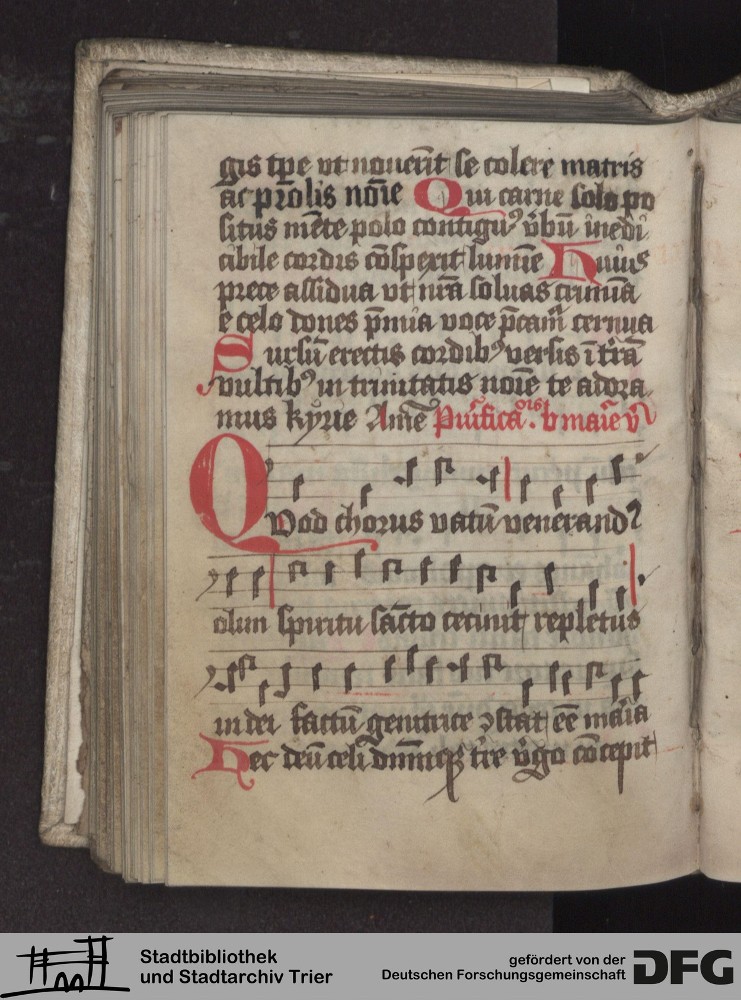 gis tp̄e vt nouer̄it se colere matris
ac p̄rolis no̅ie Qui carne solo po
situs me̅te polo contiguꝰ v̄bu̅ inedi
cibile cordis co̅sperit lumi̅e Huius
prece assidua vt nr̄a soluas crimi̅a
e celo dones p̄mia voce p̄cam̅ cernua
Sursu̅ erectis cordibꝰ versis i̅ t̄ra̅
vultibꝰ in trinitatis no̅ie te adora
mus kyrie Ame̅
Qvod chorus vatu̅ venerandꝰ
olim spiritu sa̅cto cecinit repletus
in dei factu̅ genitrice ꝯstat e̅e mar̅ia
Hec deu̅ celi dn̅mqꝫ t̄re v̄go co̅cepit
Stadtbibliothek
und Stadtarchiv Trier
gefördert von der
Deutschen Forschungsgemeinschaft DFG